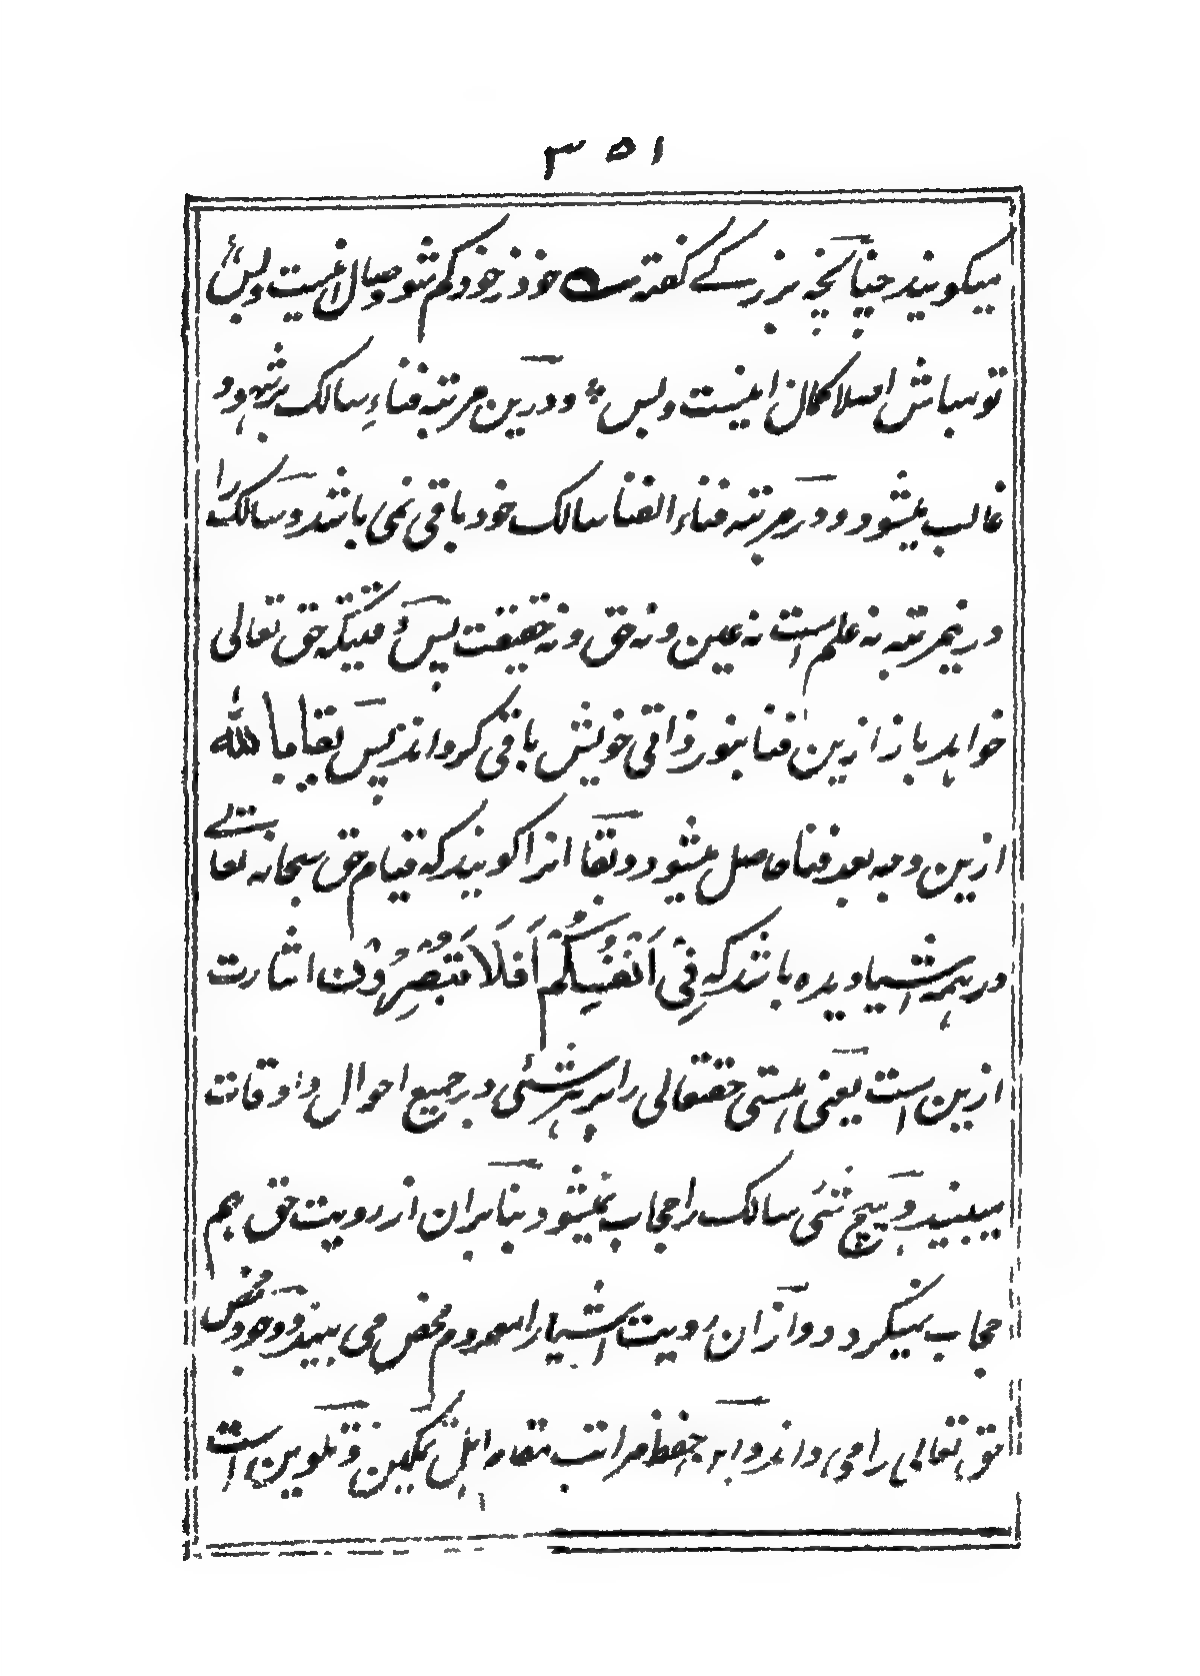 ۳۵۱
میگویند چنانچه بزرگے گفته ست خود ز خود گم شو وصال اینست وبس
تو مباش اصلا کمال اینست وبس ودرین مرتبه فناء سالک بر شهود
غالب میشود ودر مرتبه فناء الفنا سالک خود باقی نمی باشد وسالک را
درینمرتبه نه علم است نه عین ونه حق ونه حقیقت پس وقتیکه حق تعالی
خواهد باز ازین فنا بنور ذاتی خویش باقی گرداند پس بقا با الله
ازین وجه بعد فنا حاصل میشود وبقا انرا گویند که قیام حق سبحانه تعالے
در همه اشیا دیده باشد که فِیْ اَنْفُسِکُمْ اَفَلَا تُبْصِرُوْن اشارت
ازین است یعنی هستی حقتعالی را بر هر شئی در جمیع احوال واوقات
میبیند و هیچ شئی سالک را حجاب نمیشود بنابران از رویت حق هم
حجاب نمیگردد واز ان رویت اشیا را معدوم محض می بیند ووجود محض
حق تعالی را می داند واین حفظ مراتب مقام اهل تمکین وتلوین است